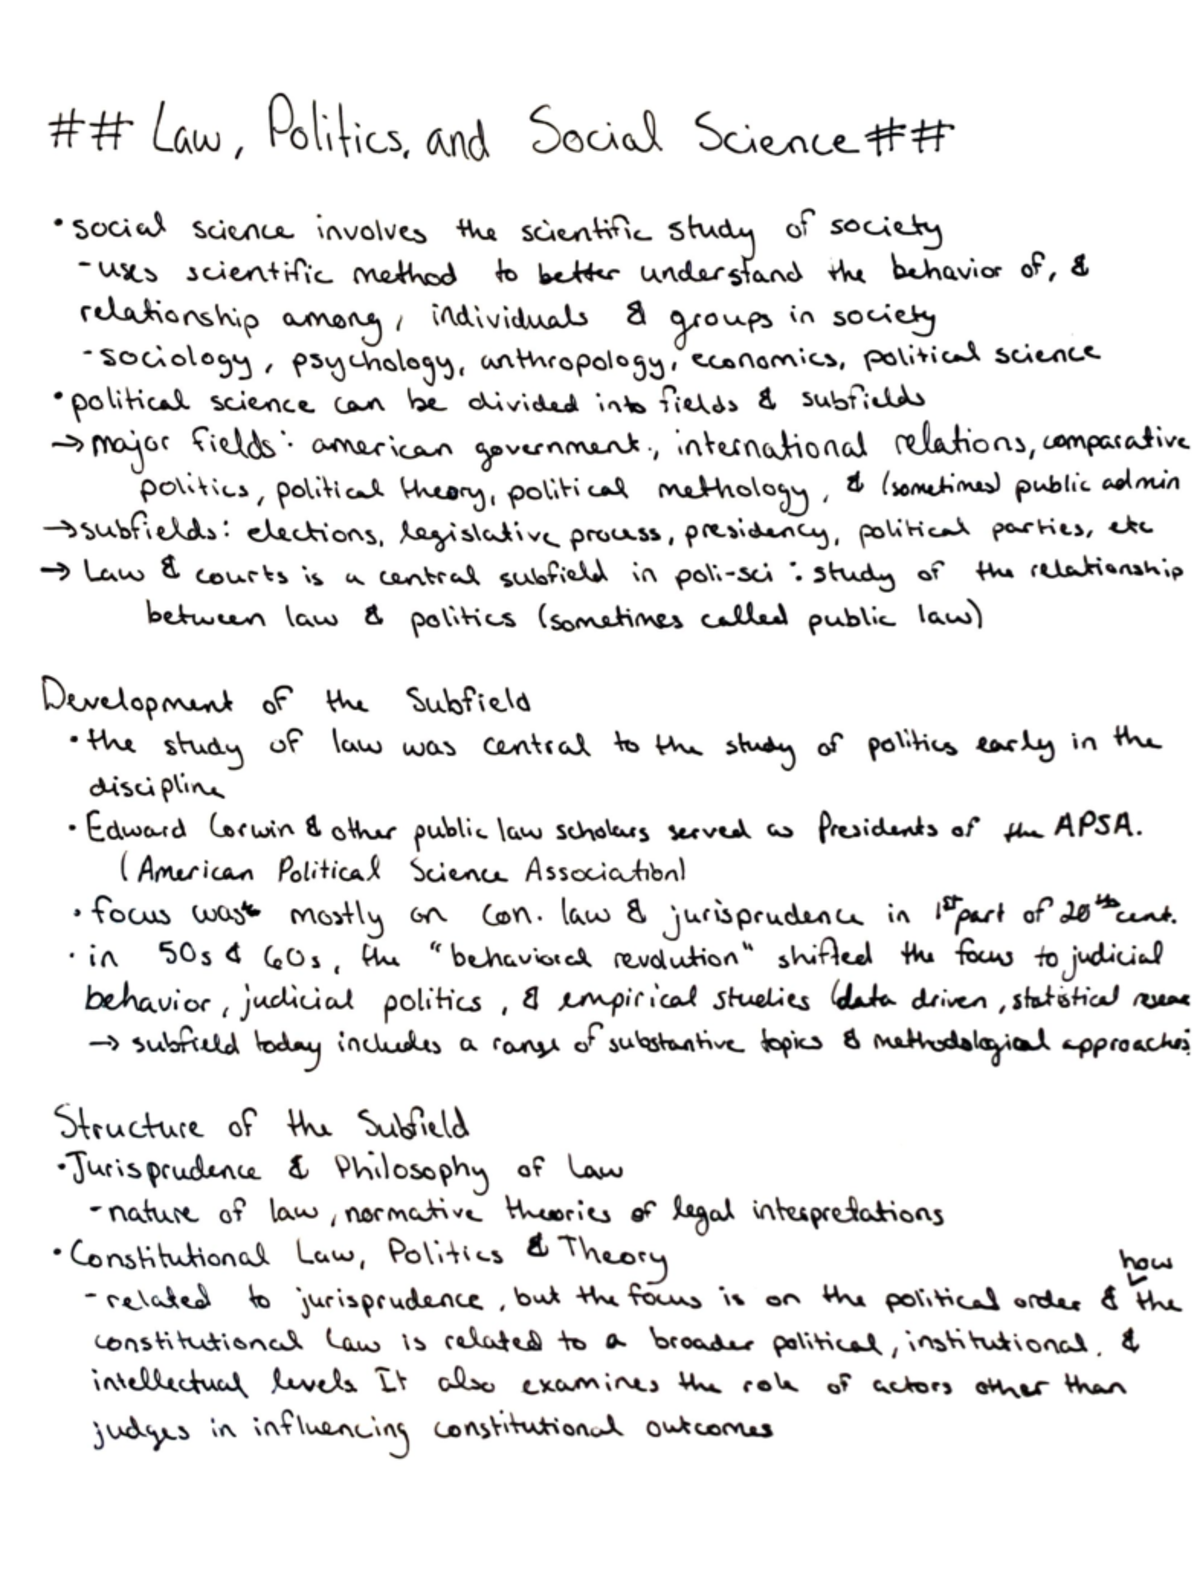 ## Law, Politics, and Social Science ##
• social science involves the scientific study of society
- uses scientific method to better understand the behavior of, &
relationship among, individuals & groups in society
- sociology, psychology, anthropology, economics, political science
• political science can be divided into fields & subfields
→ major fields: american government, international relations, comparative
politics, political theory, political methology, & (sometimes) public admin
→ subfields: elections, legislative process, presidency, political parties, etc
→ Law & courts is a central subfield in poli-sci: study of the relationship
between law & politics (sometimes called public law)
Development of the Subfield
• the study of law was central to the study of politics early in the
discipline
• Edward Corwin & other public law scholars served as Presidents of the APSA.
(American Political Science Association)
• focus was mostly on Con. law & jurisprudence in 1st part of 20th cent.
• in 50s & 60s, the "behavioral revolution" shifted the focus to judicial
behavior, judicial politics, & empirical studies (data driven, statistical
→ subfield today includes a range of substantive topics & methodological approaches
Structure of the Subfield
• Jurisprudence & Philosophy of Law
- nature of law, normative theories of legal interpretations
• Constitutional Law, Politics & Theory
- related to jurisprudence, but the focus is on the political order & how the
constitutional law is related to a broader political, institutional, &
intellectual levels It also examines the role of actors other than
judges in influencing constitutional outcomes